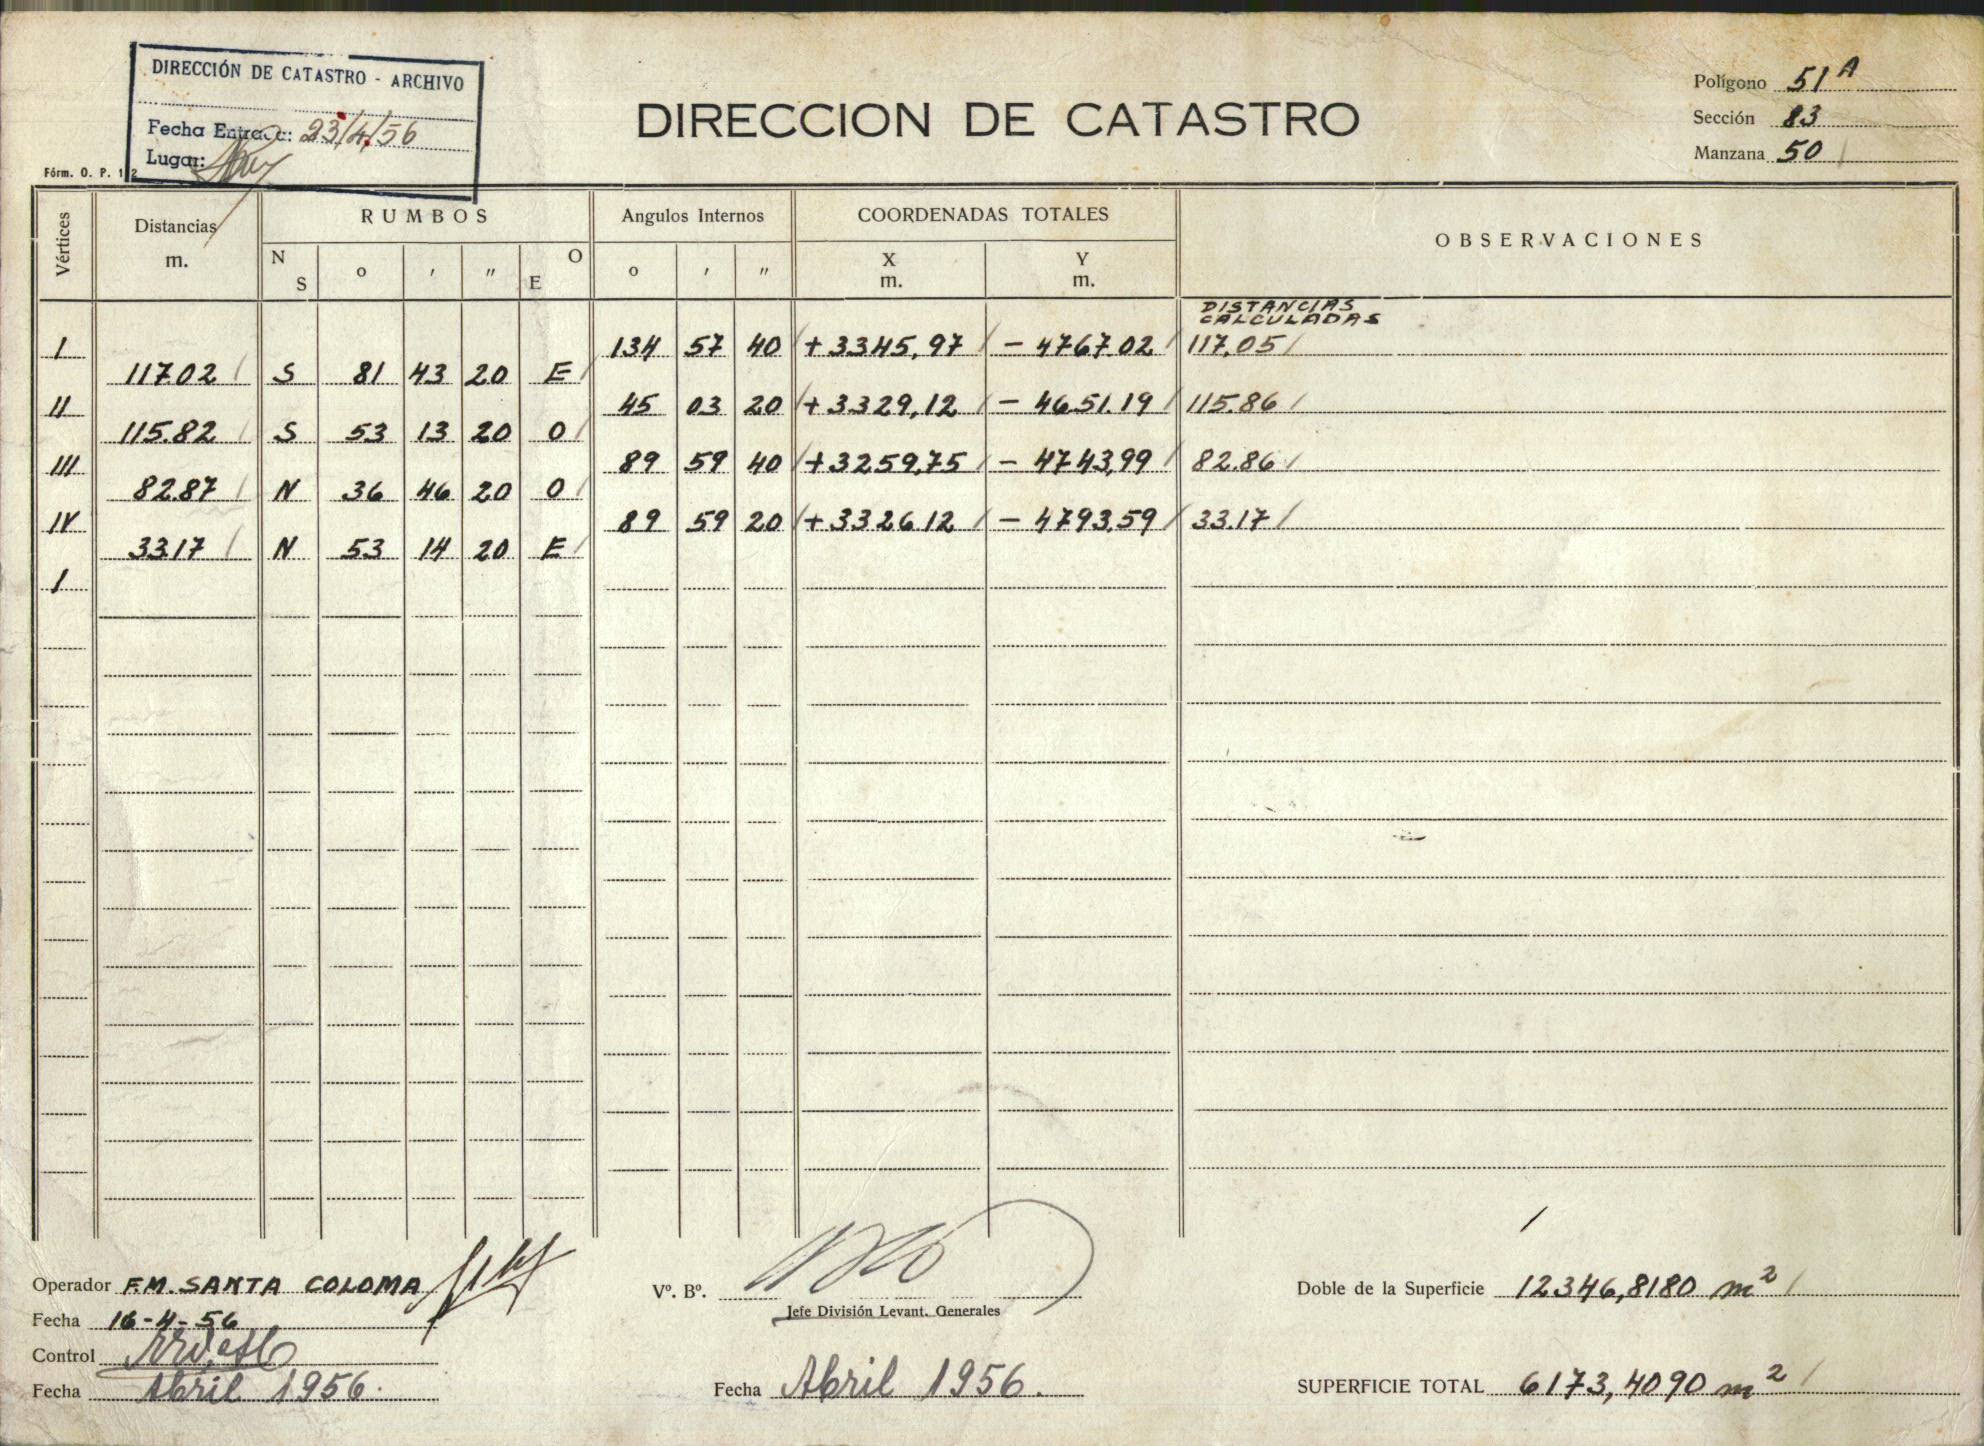 DIRECCIÓN DE CATASTRO - ARCHIVO
Fecha Entrada: 23/4/56
Lugar:
Fórm. O. P. 112
DIRECCION DE CATASTRO
Polígono 51A
Sección 83
Manzana 50
Vértices Distancias m. RUMBOS N S o ' " E O Angulos Internos o ' " COORDENADAS TOTALES X m. Y m. OBSERVACIONES
DISTANCIAS
CALCULADAS
I 134 57 40 +3345,97 - 4767.02 117,05
117.02 S 81 43 20 E
II 45 03 20 +3329,12 - 4651.19 115.86
115.82 S 53 13 20 O
III 89 59 40 +3259,75 - 4743,99 82.86
82.87 N 36 46 20 O
IV 89 59 20 +3326.12 - 4793,59 33.17
33.17 N 53 14 20 E
I
Operador F.M. SANTA COLOMA
Fecha 16-4-56
Control
Fecha Abril 1956.
Vº. Bº.
Jefe División Levant. Generales
Fecha Abril 1956.
Doble de la Superficie 12346,8180 m2
SUPERFICIE TOTAL 6173,4090 m2